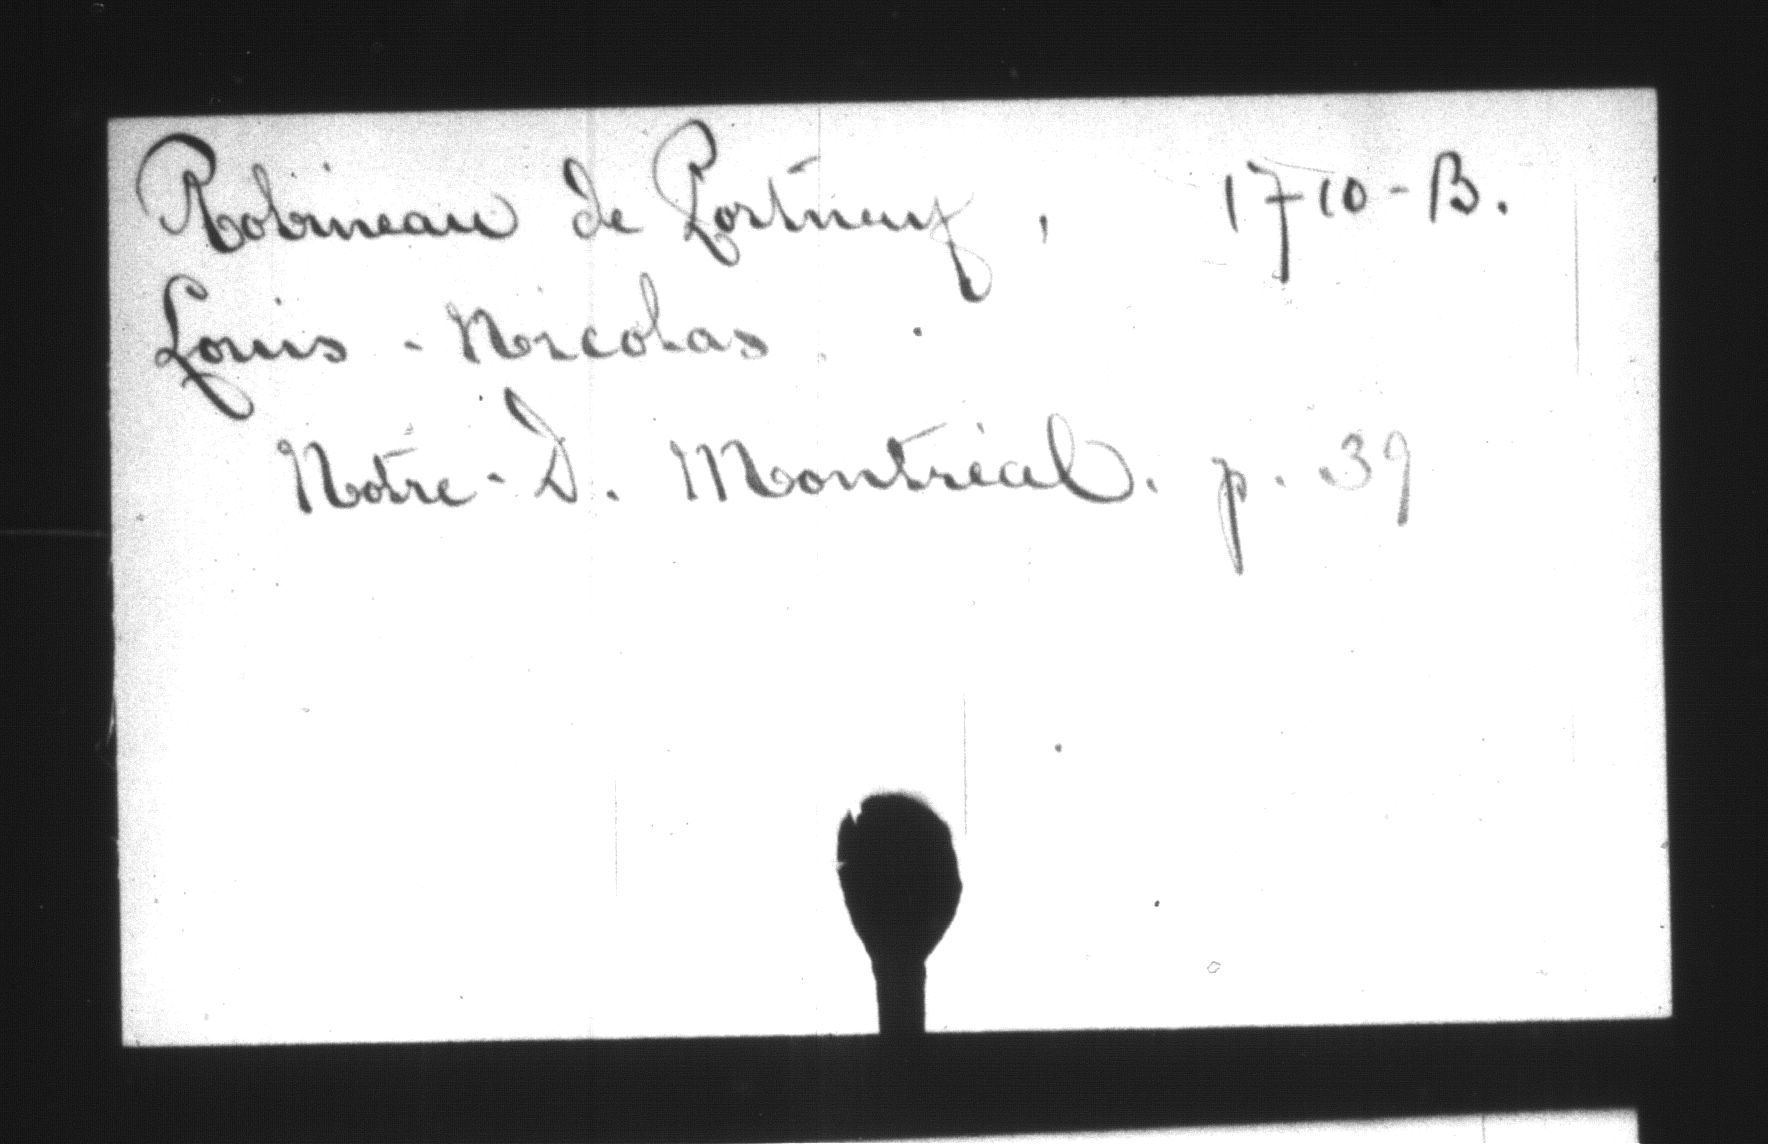 Robineau de Portneuf, 1710-B.
Louis-Nicolas.
Notre-D. Montréal. p. 39